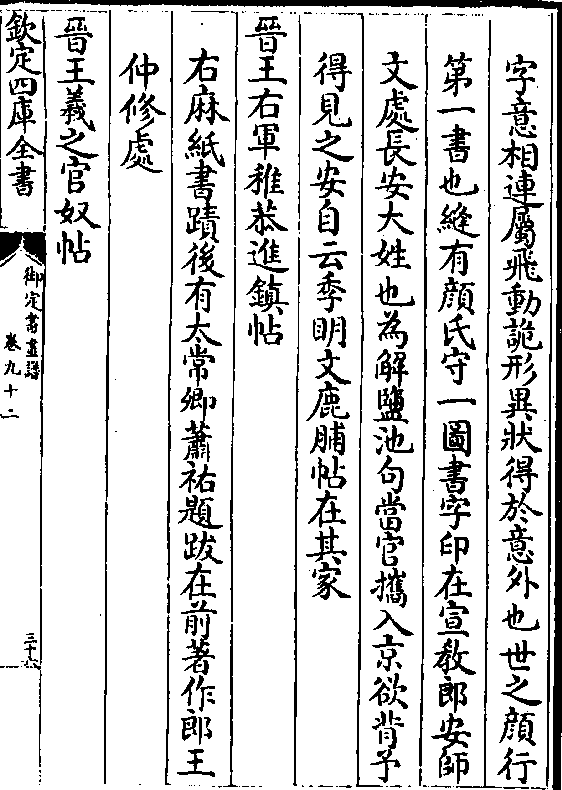 字意相連屬飛動詭形異狀得於意外也世之顔行
第一書也縫有顔氏守一圖書字印在宣教郎安師
文處長安大姓也為解鹽池句當官攜入京欲背予
得見之安自云季明文鹿脯帖在其家
晉王右軍稚恭進鎮帖
右麻紙書蹟後有太常卿蕭祐題跋在前著作郎王
仲修處
晉王羲之官奴帖
欽定四庫全書
御定書畫譜
卷九十二
三十六